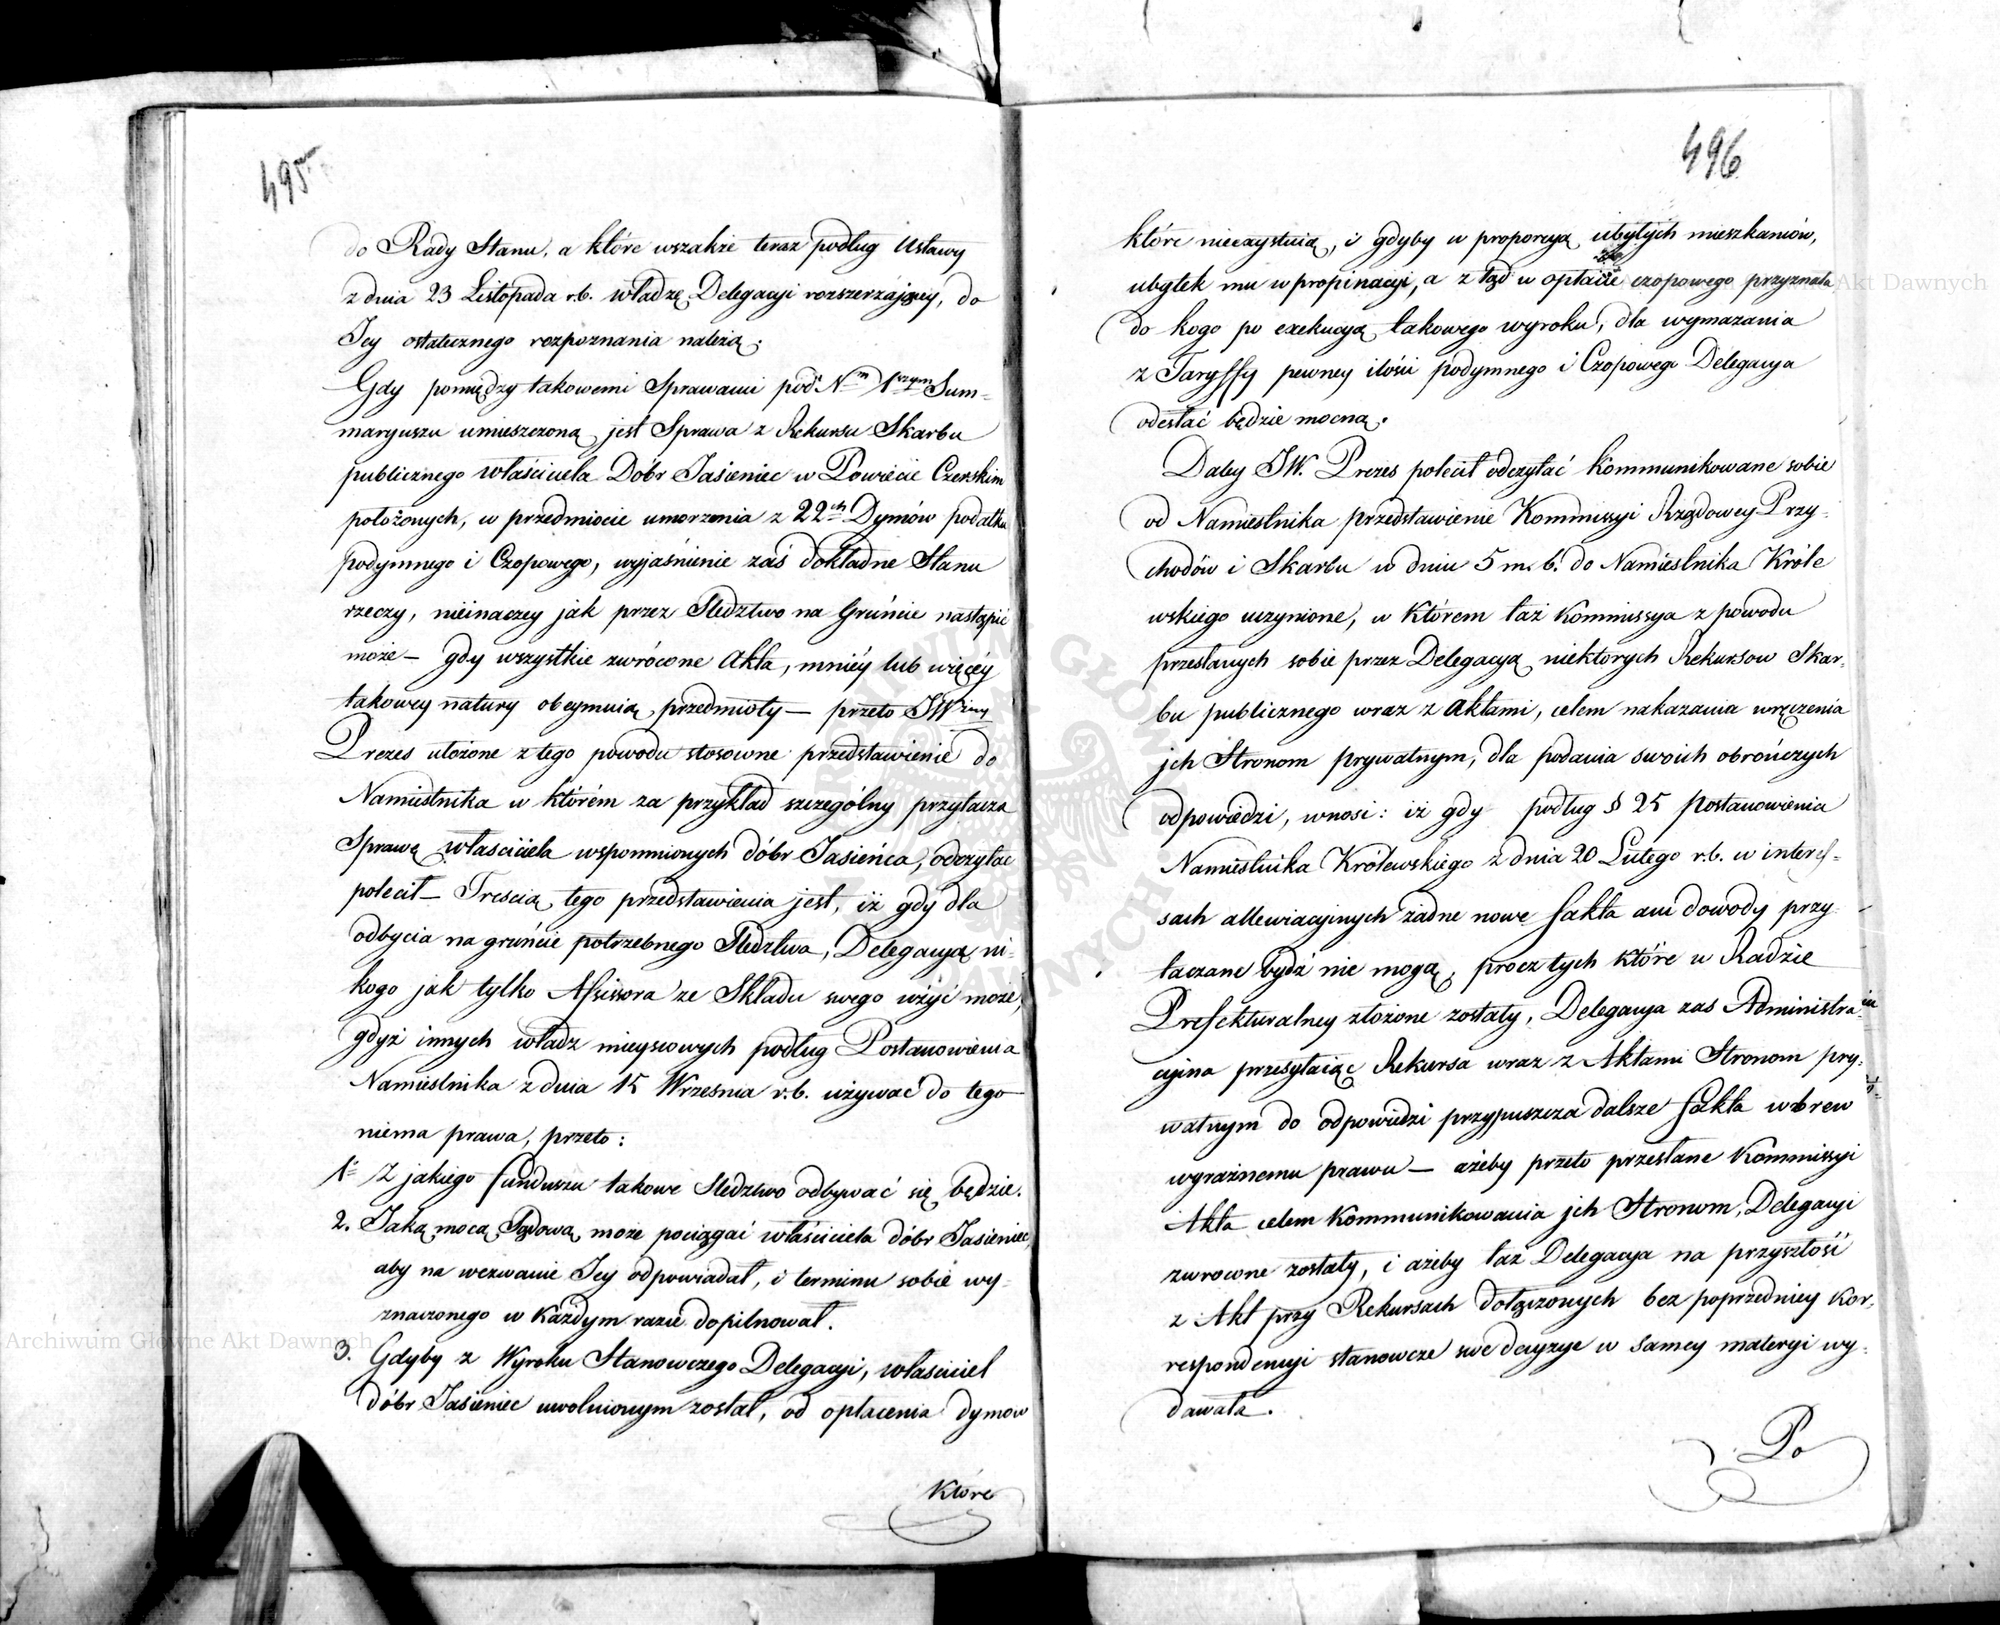 495
do Rady Stanu, a które wszakże teraz podług Ustawy
z dnia 23 Listopada r.b. władzę Delegacyi rozszerzającey, do
Jey ostatecznego rozpoznania należą.
Gdy pomiędzy takowemi Sprawami pod Nm 1szym Sum-
maryuszu umieszczoną jest Sprawa z Rekursu Skarbu
publicznego właściciela Dóbr Jasieniec w Powiecie Czerskim
położonych, w przedmiocie umorzenia z 22ch Dymów podatku
podymnego i Czopowego, wyjaśnienie zaś dokładne Stanu
rzeczy, nieinaczey jak przez Śledztwo na Gruncie nastąpić
może — gdy wszystkie zwrócone Akta, mniéy lub więcéy
takowey natury obeymuią przedmioty — przeto JWiny
Prezes ułożone z tego powodu stosowne przedstawienie do
Namiestnika w którém za przykład szczególny przytacza
Sprawę właściciela wspomnionych dóbr Jasieńca, odczytać
polecił — Treścią tego przedstawienia jest, iż gdy dla
odbycia na gruncie potrzebnego Śledztwa, Delegacya ni-
kogo jak tylko Assessora ze Składu swego użyć może,
gdyż innych władz mieyscowych podług Postanowienia
Namiestnika z dnia 15 Września r.b. używać do tego
niema prawa, przeto:
1. Z jakiego funduszu takowe Śledztwo odbywać się będzie.
2. Jaką mocą Sądową może pociągać właściciela dóbr Jasieniec,
aby na wezwanie Jey odpowiadał, i terminu sobie wy-
znaczonego w każdym razie dopilnował.
3. Gdyby z Wyroku Stanowczego Delegacyi, właściciel
dóbr Jasieniec uwolnionym został, od opłacenia dymów
które
496
które nieexystuią, i gdyby w proporcyą ubyłych mieszkańców,
ubytek mu w propinacyi, a ztąd w opłacie czopowego przyznała
do kogo po exekucyą takowego wyroku, dla wymazania
z Taryffy pewney ilości podymnego i Czopowego Delegacya
odesłać będzie mocną.
Daley JW. Prezes polecił odczytać kommunikowane sobie
od Namiestnika przedstawienie Kommissyi Rządowey Przy-
chodów i Skarbu w dniu 5 m. b. do Namiestnika Króle
wskiego uczynione, w którem taż Kommissya z powodu
przesłanych sobie przez Delegacyą niektorych Rekursow Skar-
bu publicznego wraz z Aktami, celem nakazania wręczenia
jch Stronom prywatnym, dla podania swoich obrończych
odpowiedzi, wnosi: iż gdy podług § 25 Postanowienia
Namiestnika Królewskiego z dnia 20 Lutego r.b. w interes-
sach allewiacyjnych żadne nowe fakta ani dowody przy-
taczane bydź nie mogą, procz tych które w Radzie
Prefekturalney złożone zostały, Delegacya zas Administra-
cyjna przesyłaiąc Rekursa wraz z Aktami Stronom pry-
watnym do odpowiedzi przypuszcza dalsze fakta wbrew
wyraźnemu prawu — ażeby przeto przesłane Kommissyi
Akta celem kommunikowania jch Stronom, Delegacyi
zwrocone zostały, i ażeby taż Delegacya na przyszłość
z Akt przy Rekursach dołączonych bez poprzedniey kor-
respondencyi stanowcze swe decyzye w samey materyi wy-
dawała.
Po
Archiwum Główne Akt Dawnych
Akt Dawnych